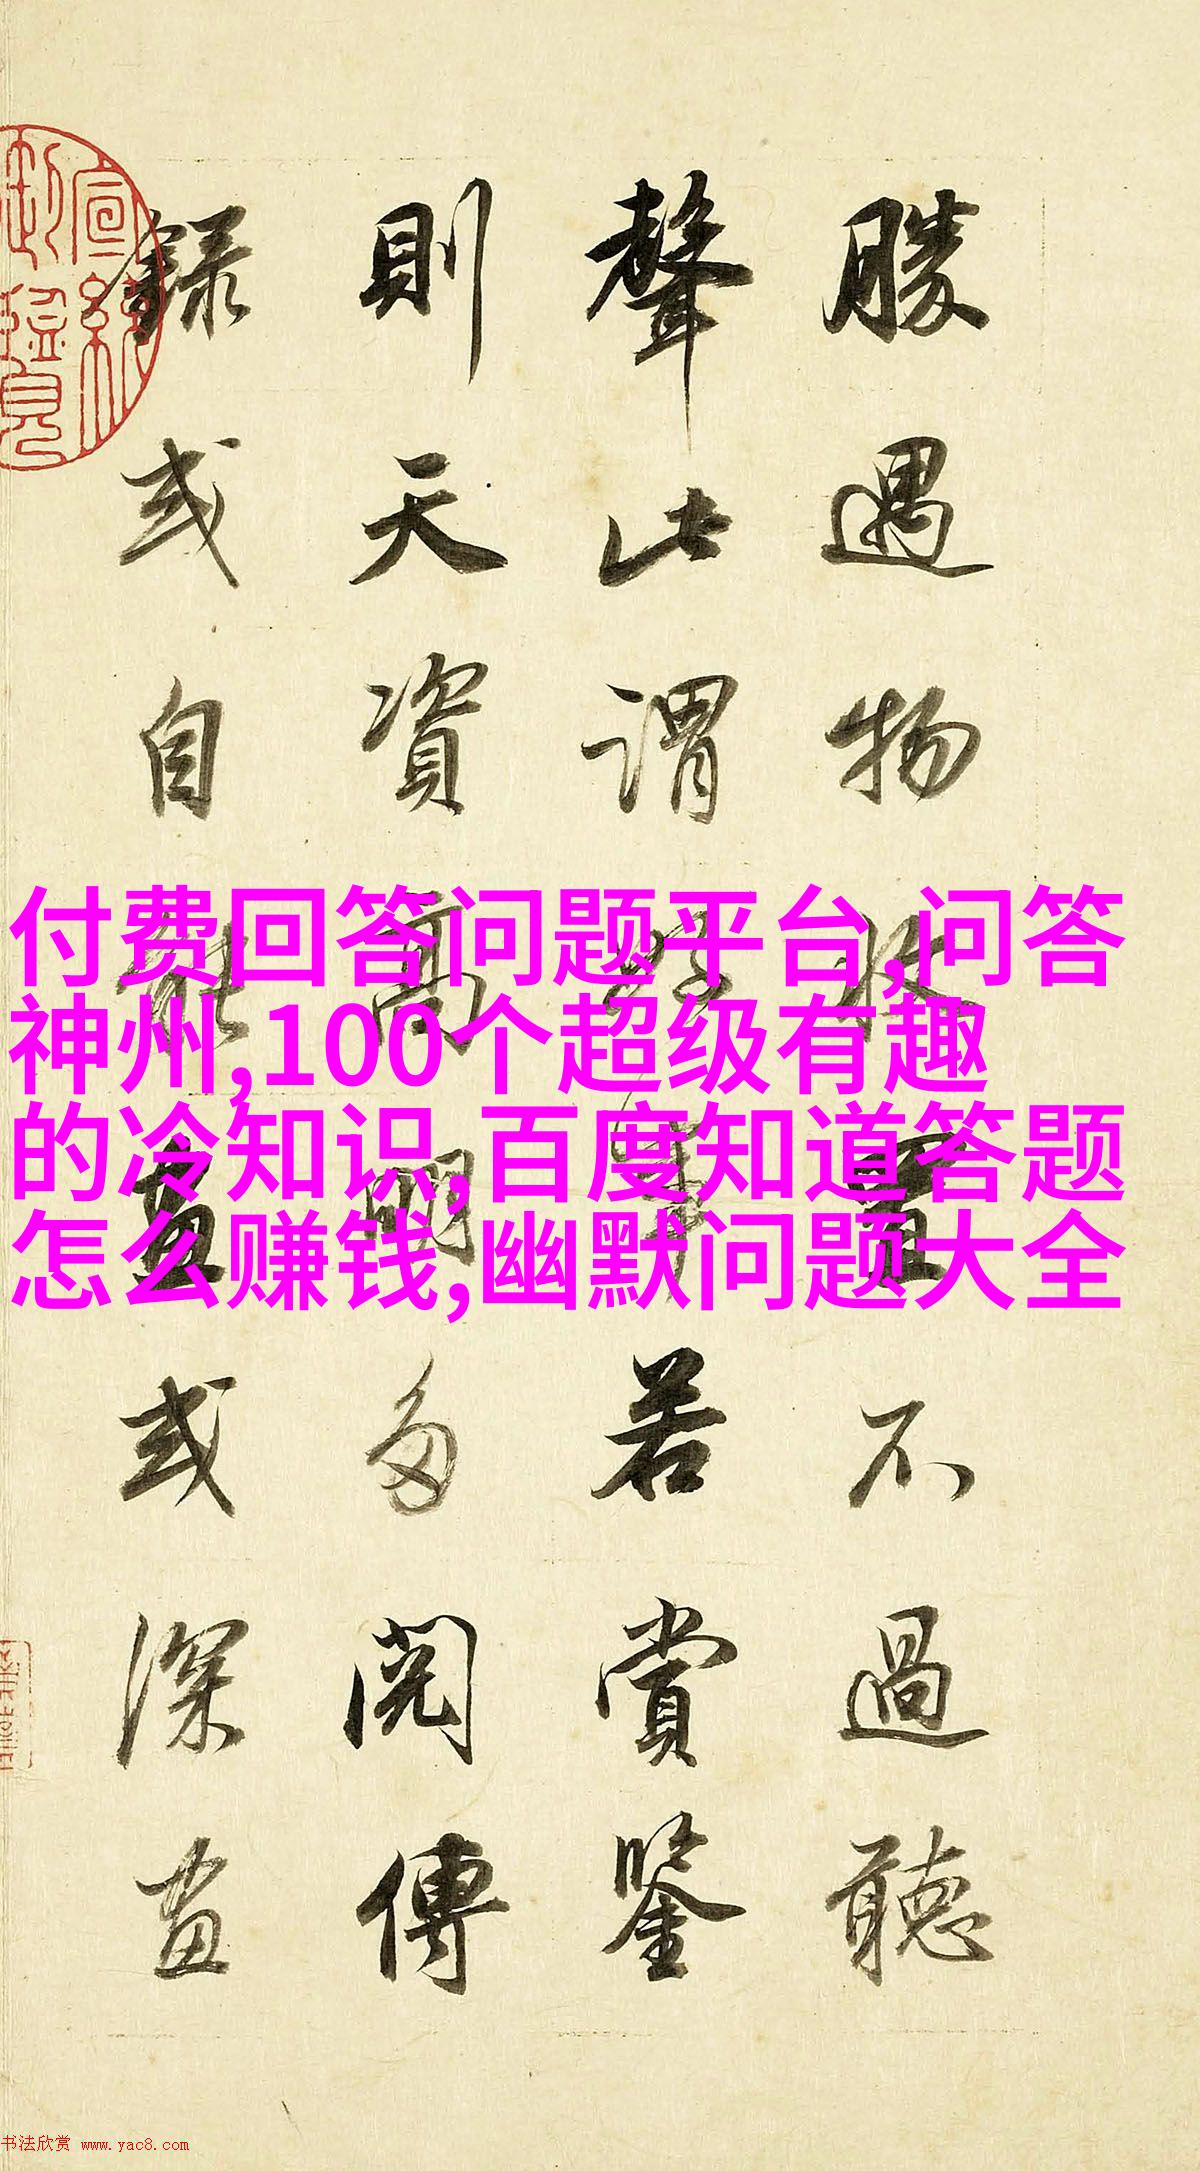 勝遇物收置不過聽
聲此謂好事若賞鑒
則天資高明多閱傳
錄或自能畫或深畫
宣統
御覽
付费回答问题平台,问答
神州,100个超级有趣
的冷知识,百度知道答题
怎么赚钱,幽默问题大全
书法欣赏 www.yac8.com